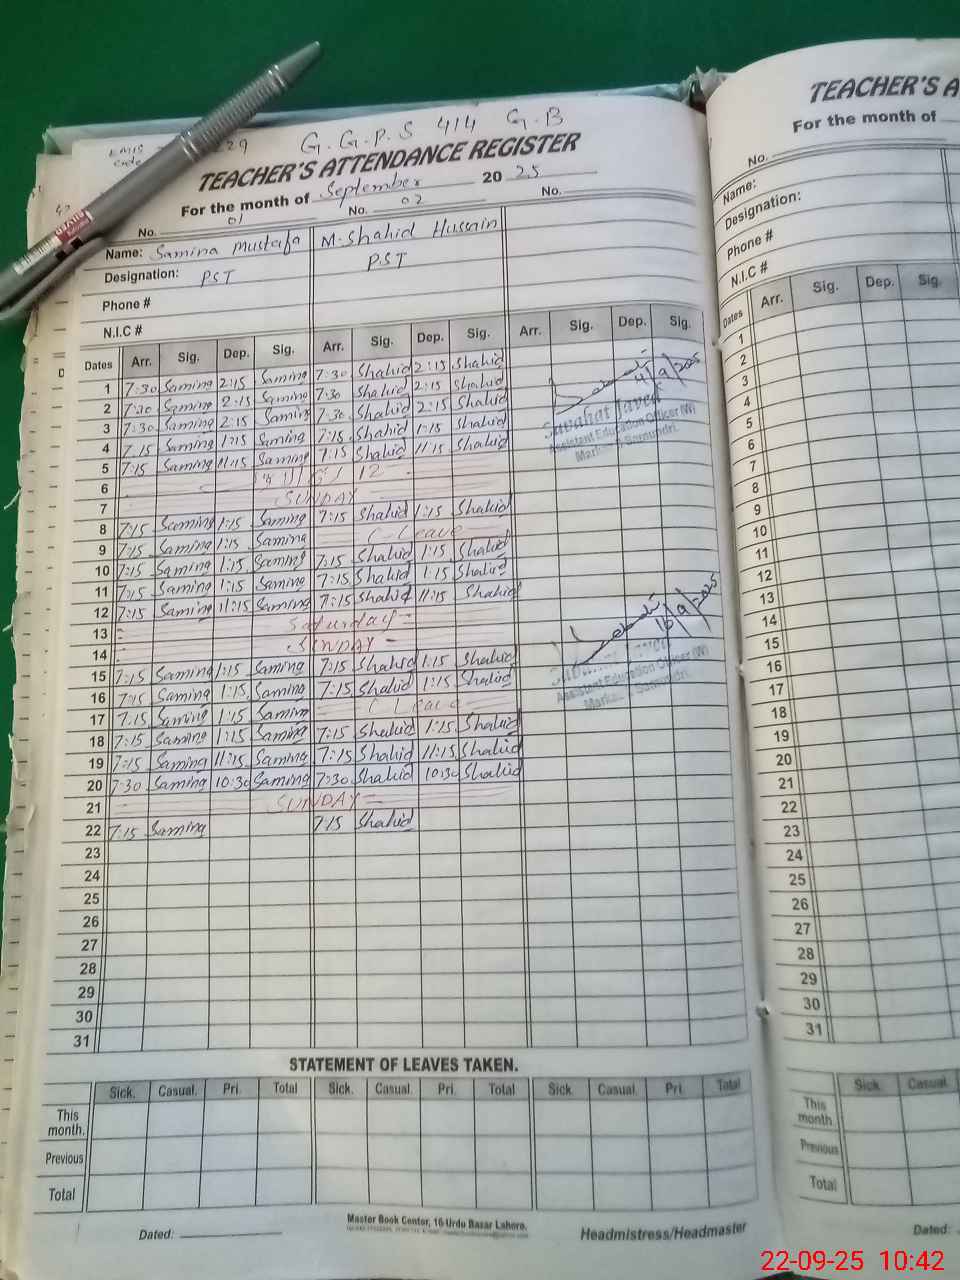 G.G.P.S 414 G.B
EMIS Code 29
TEACHER'S ATTENDANCE REGISTER
For the month of September 2025
No. 01 No. 02 No.
Name: Samina Mustafa M. Shahid Hussain
Designation: PST PST
Phone #
N.I.C #
Dates Arr. Sig. Dep. Sig. Arr. Sig. Dep. Sig. Arr. Sig. Dep. Sig.
1 7:30 Samina 2:15 Samina 7:30 Shahid 2:15 Shahid
2 7:30 Samina 2:15 Samina 7:30 Shahid 2:15 Shahid
3 7:30 Samina 2:15 Samina 7:30 Shahid 2:15 Shahid
4 7:15 Samina 1:15 Samina 7:15 Shahid 1:15 Shahid
5 7:15 Samina 11:15 Samina 7:15 Shahid 11:15 Shahid
6
7 SUNDAY
8 7:15 Samina 1:15 Samina 7:15 Shahid 1:15 Shahid
9 7:15 Samina 1:15 Samina C-Leave
10 7:15 Samina 1:15 Samina 7:15 Shahid 1:15 Shahid
11 7:15 Samina 1:15 Samina 7:15 Shahid 1:15 Shahid
12 7:15 Samina 11:15 Samina 7:15 Shahid 11:15 Shahid
13 Saturday
14 SUNDAY
15 7:15 Samina 1:15 Samina 7:15 Shahid 1:15 Shahid
16 7:15 Samina 1:15 Samina 7:15 Shahid 1:15 Shahid
17 7:15 Samina 1:15 Samina C Leave
18 7:15 Samina 1:15 Samina 7:15 Shahid 1:15 Shahid
19 7:15 Samina 11:15 Samina 7:15 Shahid 11:15 Shahid
20 7:30 Samina 10:30 Samina 7:30 Shahid 10:30 Shahid
21 SUNDAY
22 7:15 Samina 7:15 Shahid
23
24
25
26
27
28
29
30
31
4/9/2025
Sabahat Javed
Assistant Education Officer (W)
Markaz Samundri.
16/9/2025
Assistant Education Officer (W)
Markaz Samundri.
STATEMENT OF LEAVES TAKEN.
Sick. Casual. Pri. Total Sick. Casual. Pri. Total Sick. Casual. Pri. Total
This month.
Previous
Total
Dated:
Master Book Center, 16-Urdu Bazar Lahore.
Headmistress/Headmaster
TEACHER'S A
For the month of
No.
Name:
Designation:
Phone #
N.I.C #
Dates Arr. Sig. Dep. Sig.
1
2
3
4
5
6
7
8
9
10
11
12
13
14
15
16
17
18
19
20
21
22
23
24
25
26
27
28
29
30
31
Sick. Casual.
This month
Previous
Total
Dated:
22-09-25 10:42